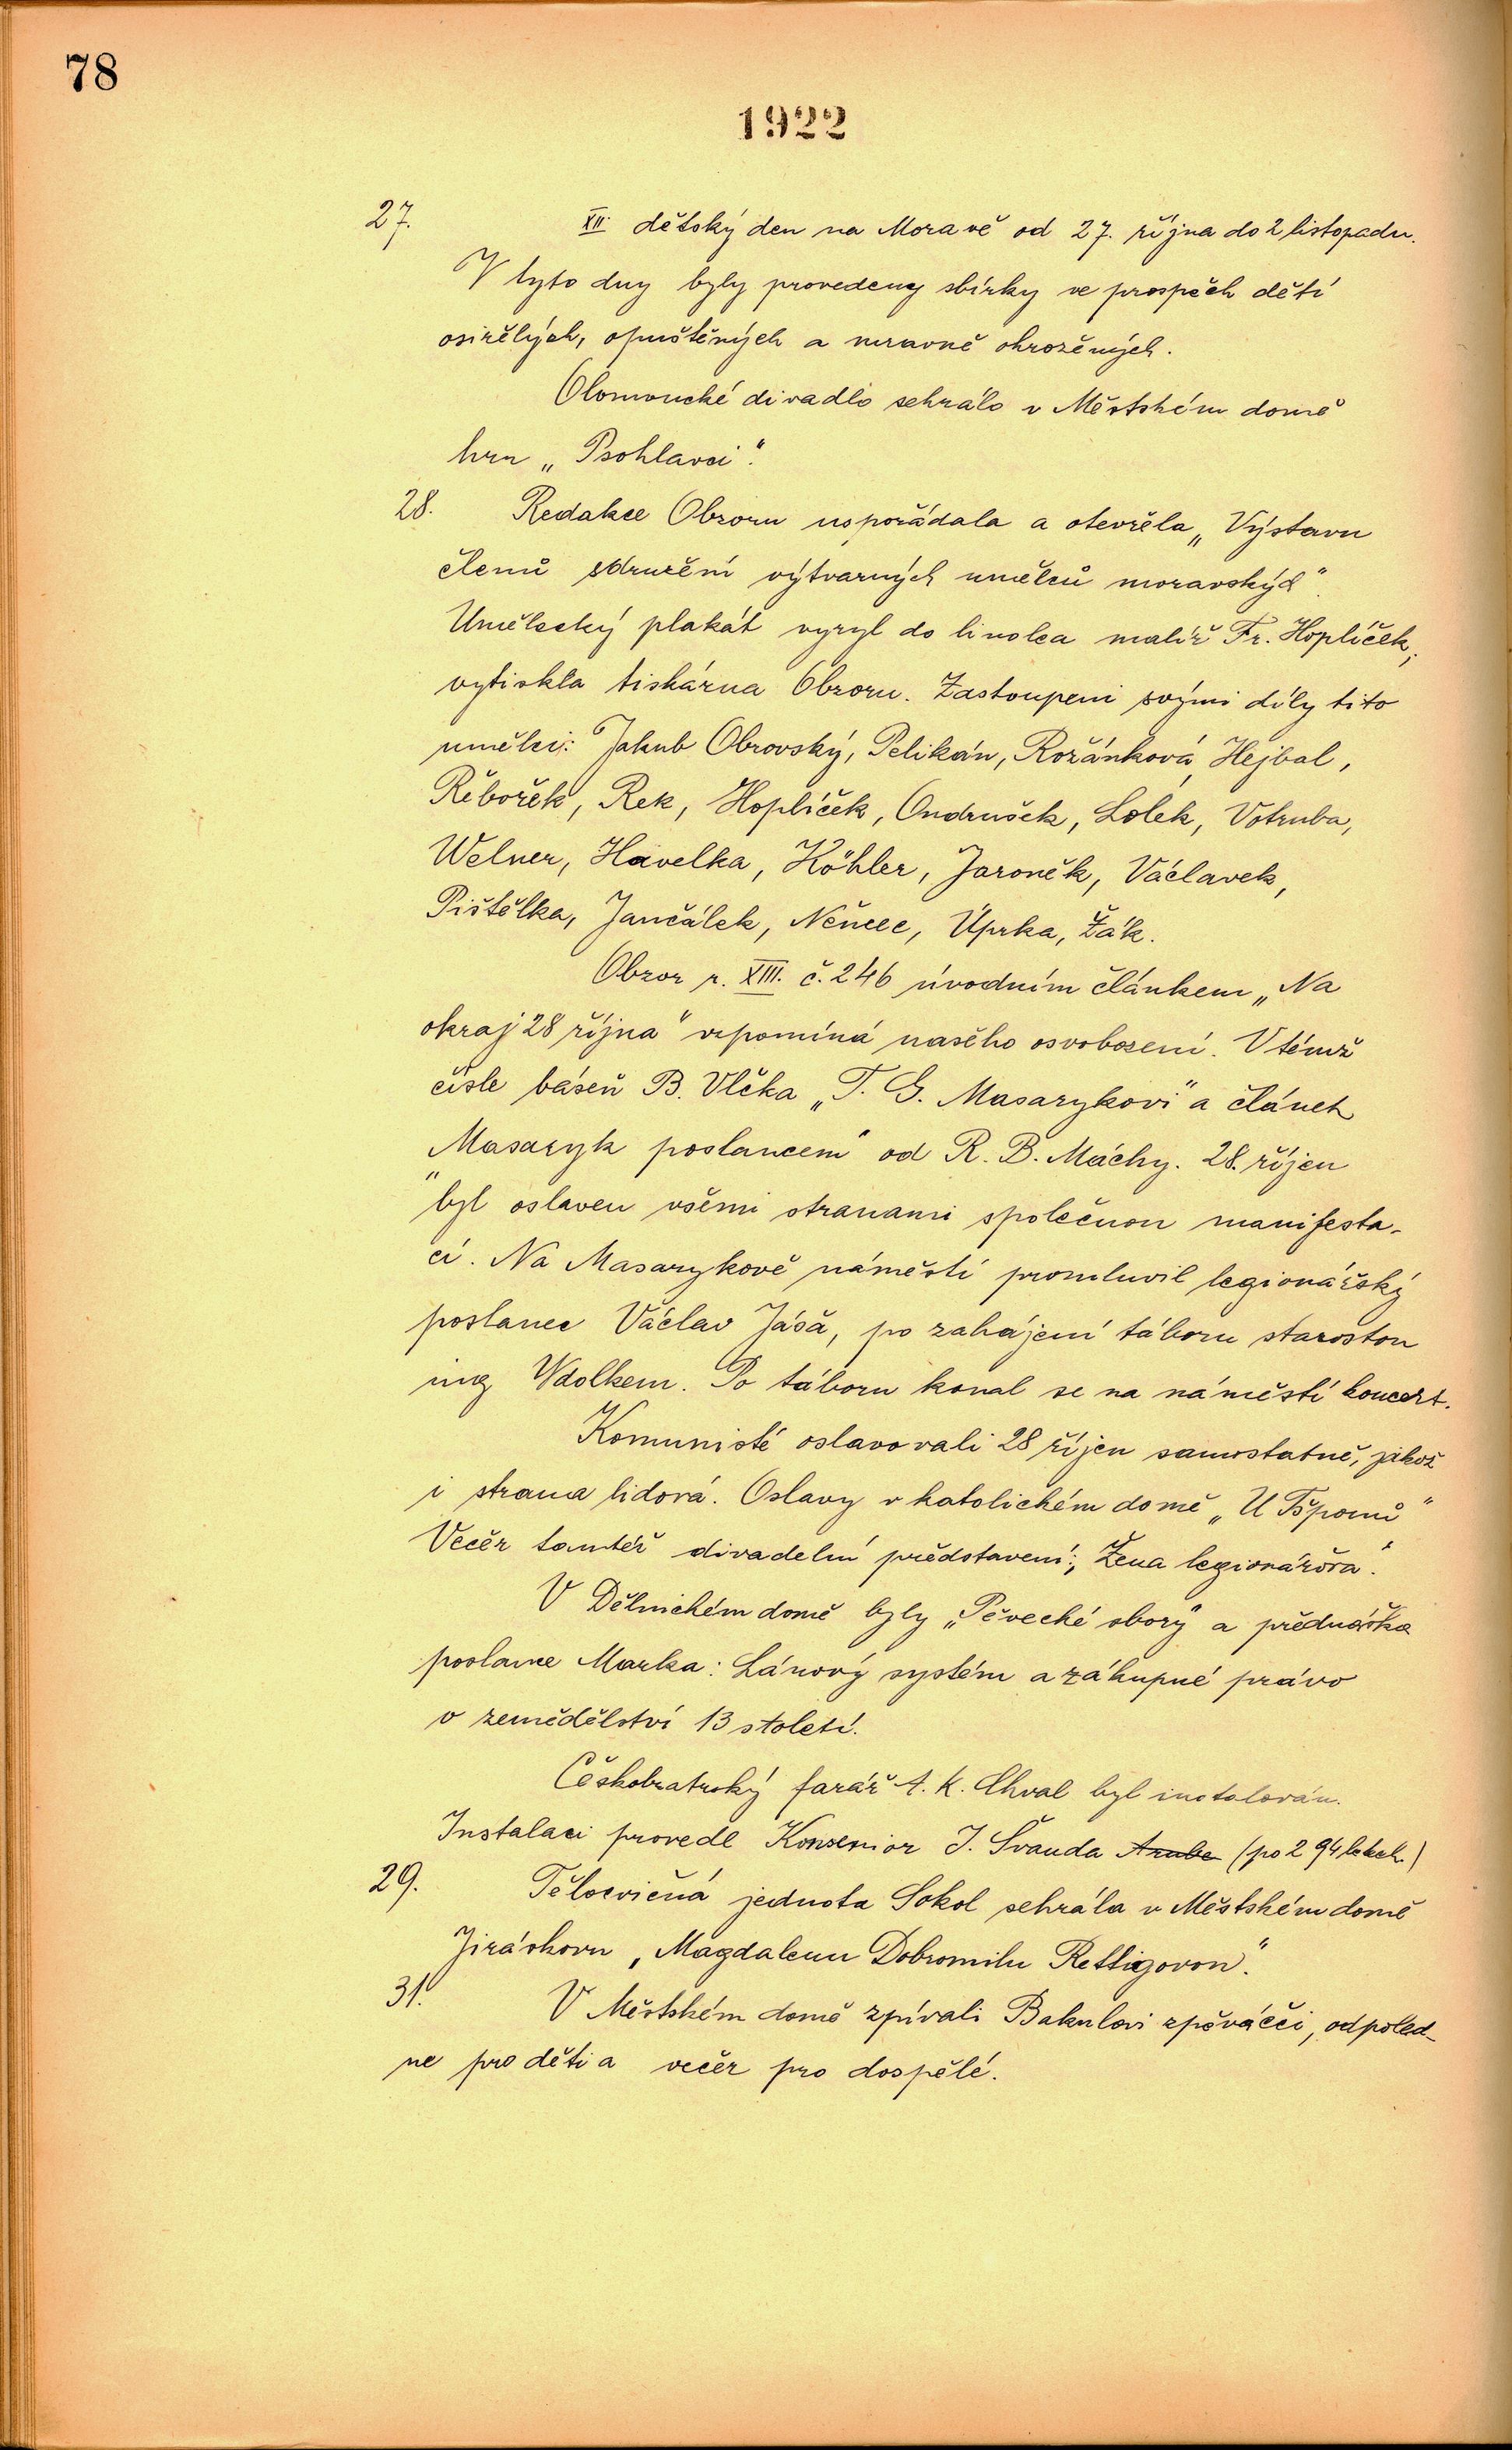 78
1922
27. XII. dětský den na Moravě od 27. října do 2 listopadu.
V tyto dny byly provedeny sbírky ve prospěch dětí
osiřělých, opuštěných a mravně ohrožěných.
Olomoucké divadlo sehrálo v Městském domě
hru „Psohlavci".
28. Redakce Obzoru uspořádala a otevřěla „Výstavu
členů sdružení výtvarných umělců moravských".
Umělecký plakát vyryl do linolea malíř Fr. Hoplíček,
vytiskla tiskárna Obzoru. Zastoupeni svými díly tito
umělci: Jakub Obrovský, Pelikán, Rožánková, Hejbal,
Řebořek, Rek, Hoplíček, Ondrušek, Lolek, Votruba,
Welner, Havelka, Köhler, Jaroněk, Václavek,
Pištělka, Jančálek, Něnec, Úprka, Žák.
Obzor r. XIII. č. 246 úvodním článkem „Na
okraj 28 října" vzpomíná našeho osvobození. V témž
čísle báseň B. Vlčka „T. G. Masarykovi" a článek
„Masaryk poslancem" od R. B. Máchy. 28. říjen
byl oslaven všemi stranami společnou manifesta-
cí. Na Masarykově náměstí promluvil legionářský
poslanec Václav Jáša, po zahájení táboru starostou
ing Wdolkem. Po táboru konal se na náměstí koncert.
Komunisté oslavovali 28 říjen samostatně, jakož
i strana lidová. Oslavy v katolickém domě „U Tšponů"
Večer tamtéž divadelní představení: „Žena legionářova".
V Dělnickém domě byly „Pěvecké sbory" a přednáška
poslance Marka: Lánový systém a zákupné právo
v zemědělství 13 století.
Českobratrský farář A. K. Chval byl instalován.
Instalaci provedl Konsenior J. Švanda (po 294 letech.)
29. Tělocvičná jednota Sokol sehrála v Městském domě
Jiráskovu „Magdalenu Dobromilu Rettigovou".
31. V Městském domě zpívali Bakulovi zpěváčci, odpoled-
ne pro děti a večěr pro dospělé.